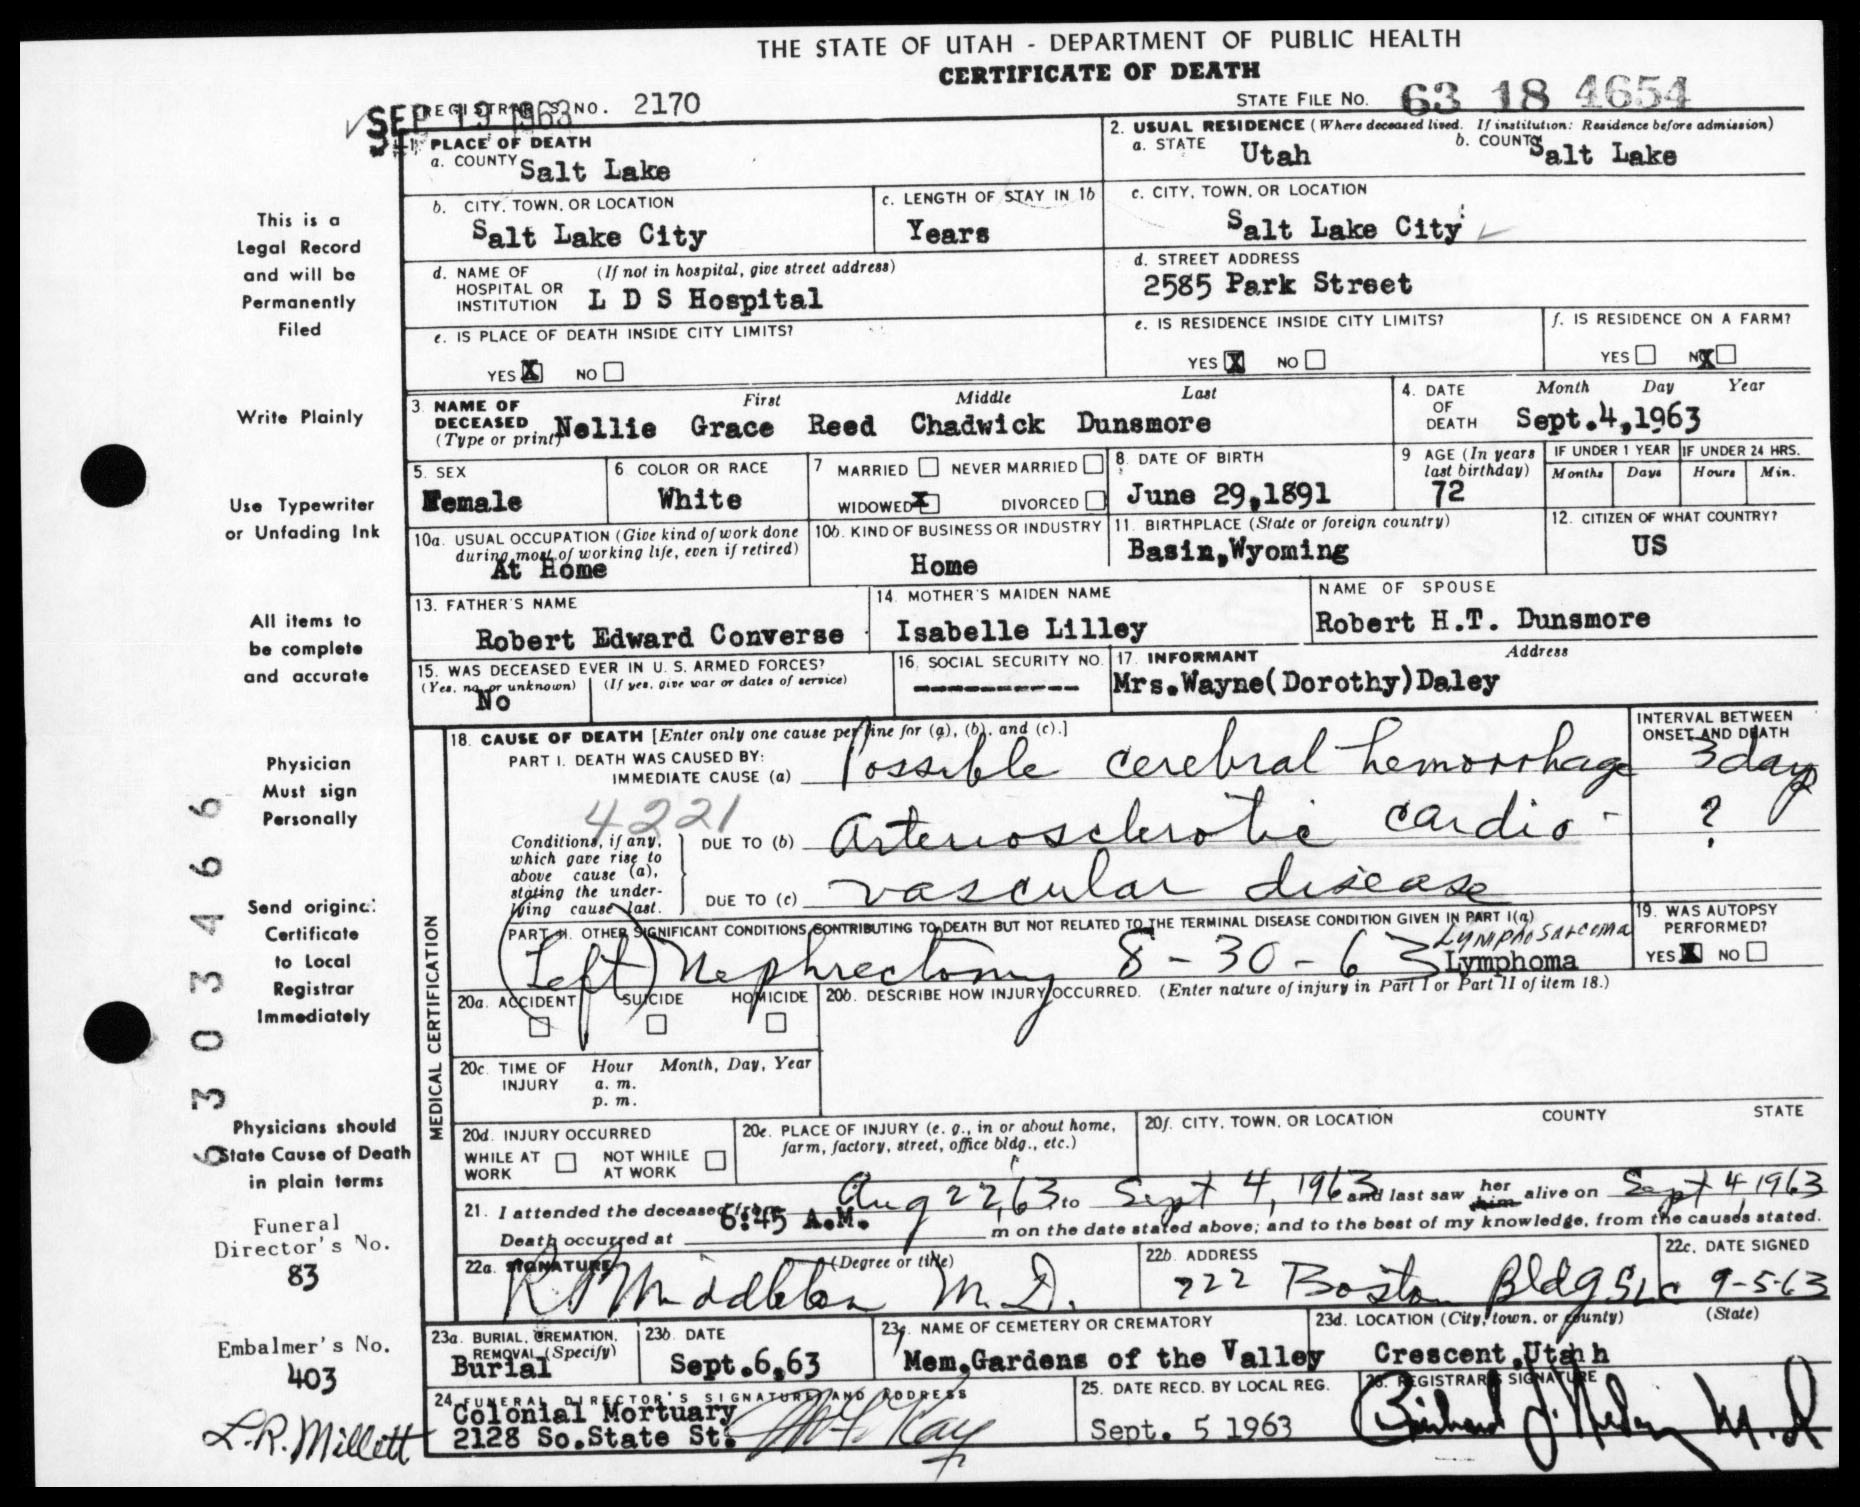 THE STATE OF UTAH - DEPARTMENT OF PUBLIC HEALTH
CERTIFICATE OF DEATH
REGISTRAR'S NO. 2170
STATE FILE NO. 63 18 4654
SEP 19 1963
1. PLACE OF DEATH
a. COUNTY Salt Lake
2. USUAL RESIDENCE (Where deceased lived. If institution: Residence before admission)
a. STATE Utah b. COUNTY Salt Lake
b. CITY, TOWN, OR LOCATION
Salt Lake City
c. LENGTH OF STAY IN 1b
Years
c. CITY, TOWN, OR LOCATION
Salt Lake City
d. NAME OF HOSPITAL OR INSTITUTION (If not in hospital, give street address)
L D S Hospital
d. STREET ADDRESS
2585 Park Street
e. IS PLACE OF DEATH INSIDE CITY LIMITS?
YES X NO
e. IS RESIDENCE INSIDE CITY LIMITS?
YES X NO
f. IS RESIDENCE ON A FARM?
YES NO X
3. NAME OF DECEASED (Type or print) First Middle Last
Nellie Grace Reed Chadwick Dunsmore
4. DATE OF DEATH Month Day Year
Sept.4,1963
5. SEX
Female
6. COLOR OR RACE
White
7 MARRIED NEVER MARRIED
WIDOWED X DIVORCED
8. DATE OF BIRTH
June 29,1891
9 AGE (In years last birthday)
72
IF UNDER 1 YEAR
Months Days
IF UNDER 24 HRS.
Hours Min.
10a. USUAL OCCUPATION (Give kind of work done during most of working life, even if retired)
At Home
10b. KIND OF BUSINESS OR INDUSTRY
Home
11. BIRTHPLACE (State or foreign country)
Basin,Wyoming
12. CITIZEN OF WHAT COUNTRY?
US
13. FATHER'S NAME
Robert Edward Converse
14. MOTHER'S MAIDEN NAME
Isabelle Lilley
NAME OF SPOUSE
Robert H.T. Dunsmore
15. WAS DECEASED EVER IN U. S. ARMED FORCES?
(Yes, no, or unknown) (If yes, give war or dates of service)
No
16. SOCIAL SECURITY NO.
-----------
17. INFORMANT Address
Mrs.Wayne(Dorothy)Daley
MEDICAL CERTIFICATION
18. CAUSE OF DEATH [Enter only one cause per line for (a), (b), and (c).]
INTERVAL BETWEEN ONSET AND DEATH
PART I. DEATH WAS CAUSED BY:
IMMEDIATE CAUSE (a) Possible cerebral hemorrhage 3 days
4221
Conditions, if any, which gave rise to above cause (a), stating the underlying cause last.
DUE TO (b) Arteriosclerotic cardio- ?
DUE TO (c) vascular disease
PART II. OTHER SIGNIFICANT CONDITIONS CONTRIBUTING TO DEATH BUT NOT RELATED TO THE TERMINAL DISEASE CONDITION GIVEN IN PART I(a)
(Left) Nephrectomy 8-30-63 Lymphosarcoma
Lymphoma
19. WAS AUTOPSY PERFORMED?
YES X NO
20a. ACCIDENT SUICIDE HOMICIDE
20b. DESCRIBE HOW INJURY OCCURRED. (Enter nature of injury in Part I or Part II of item 18.)
20c. TIME OF INJURY Hour Month, Day, Year
a. m.
p. m.
20d. INJURY OCCURRED
WHILE AT WORK NOT WHILE AT WORK
20e. PLACE OF INJURY (e. g., in or about home, farm, factory, street, office bldg., etc.)
20f. CITY, TOWN, OR LOCATION COUNTY STATE
21. I attended the deceased from Aug 22, 63 to Sept 4, 1963 and last saw her him alive on Sept 4, 1963
Death occurred at 6:45 A.M. m on the date stated above; and to the best of my knowledge, from the causes stated.
22a. SIGNATURE (Degree or title)
Middleton M.D.
22b. ADDRESS
722 Boston Bldg SLC
22c. DATE SIGNED
9-5-63
23a. BURIAL, CREMATION, REMOVAL (Specify)
Burial
23b. DATE
Sept.6,63
23c. NAME OF CEMETERY OR CREMATORY
Mem.Gardens of the Valley
23d. LOCATION (City, town, or county) (State)
Crescent,Utah h
24. FUNERAL DIRECTOR'S SIGNATURE AND ADDRESS
Colonial Mortuary
2128 So.State St.
25. DATE RECD. BY LOCAL REG.
Sept. 5 1963
26. REGISTRAR'S SIGNATURE
M.D
This is a
Legal Record
and will be
Permanently
Filed
Write Plainly
Use Typewriter
or Unfading Ink
All items to
be complete
and accurate
Physician
Must sign
Personally
Send original
Certificate
to Local
Registrar
Immediately
Physicians should
State Cause of Death
in plain terms
Funeral
Director's No.
83
Embalmer's No.
403
L.R. Millett
6303466